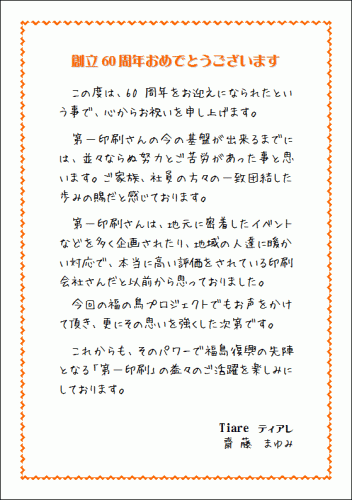 創立60周年おめでとうございます
この度は、60 周年をお迎えになられたとい
う事で、心からお祝いを申し上げます。
第一印刷さんの今の基盤が出来るまでに
は、並々ならぬ努力とご苦労があった事と思
います。ご家族、社員の方々の一致団結した
歩みの賜だと感じております。
第一印刷さんは、地元に密着したイベント
などを多く企画されたり、地域の人達に暖か
い対応で、本当に高い評価をされている印刷
会社さんだと以前から思っておりました。
今回の福の鳥プロジェクトでもお声をかけ
て頂き、更にその思いを強くした次第です。
これからも、そのパワーで福島復興の先陣
となる「第一印刷」の益々のご活躍を楽しみに
しております。
Tiare ティアレ
齋藤 まゆみ